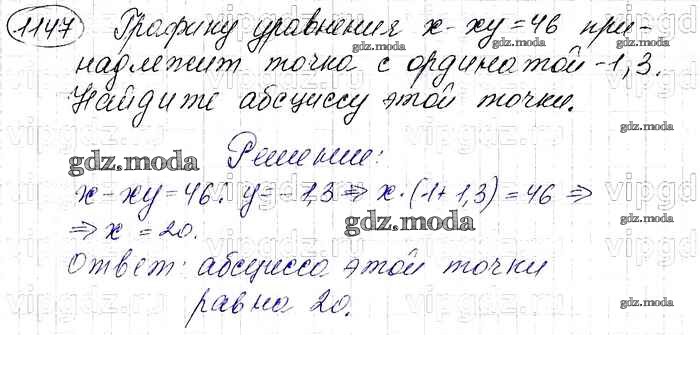 1147 Графику уравнения x - xy = 46 при-
надлежит точка с ординатой -1,3.
Найдите абсциссу этой точки.
Решение:
x - xy = 46; y = -1,3 => x·(1 + 1,3) = 46 =>
=> x = 20.
Ответ: абсцисса этой точки
равна 20.
gdz.moda
gdz.moda
gdz.moda
gdz.moda
gdz.moda
gdz.moda
gdz.moda
gdz.moda
vipgdz.ru
vipgdz.ru
vipgdz.ru